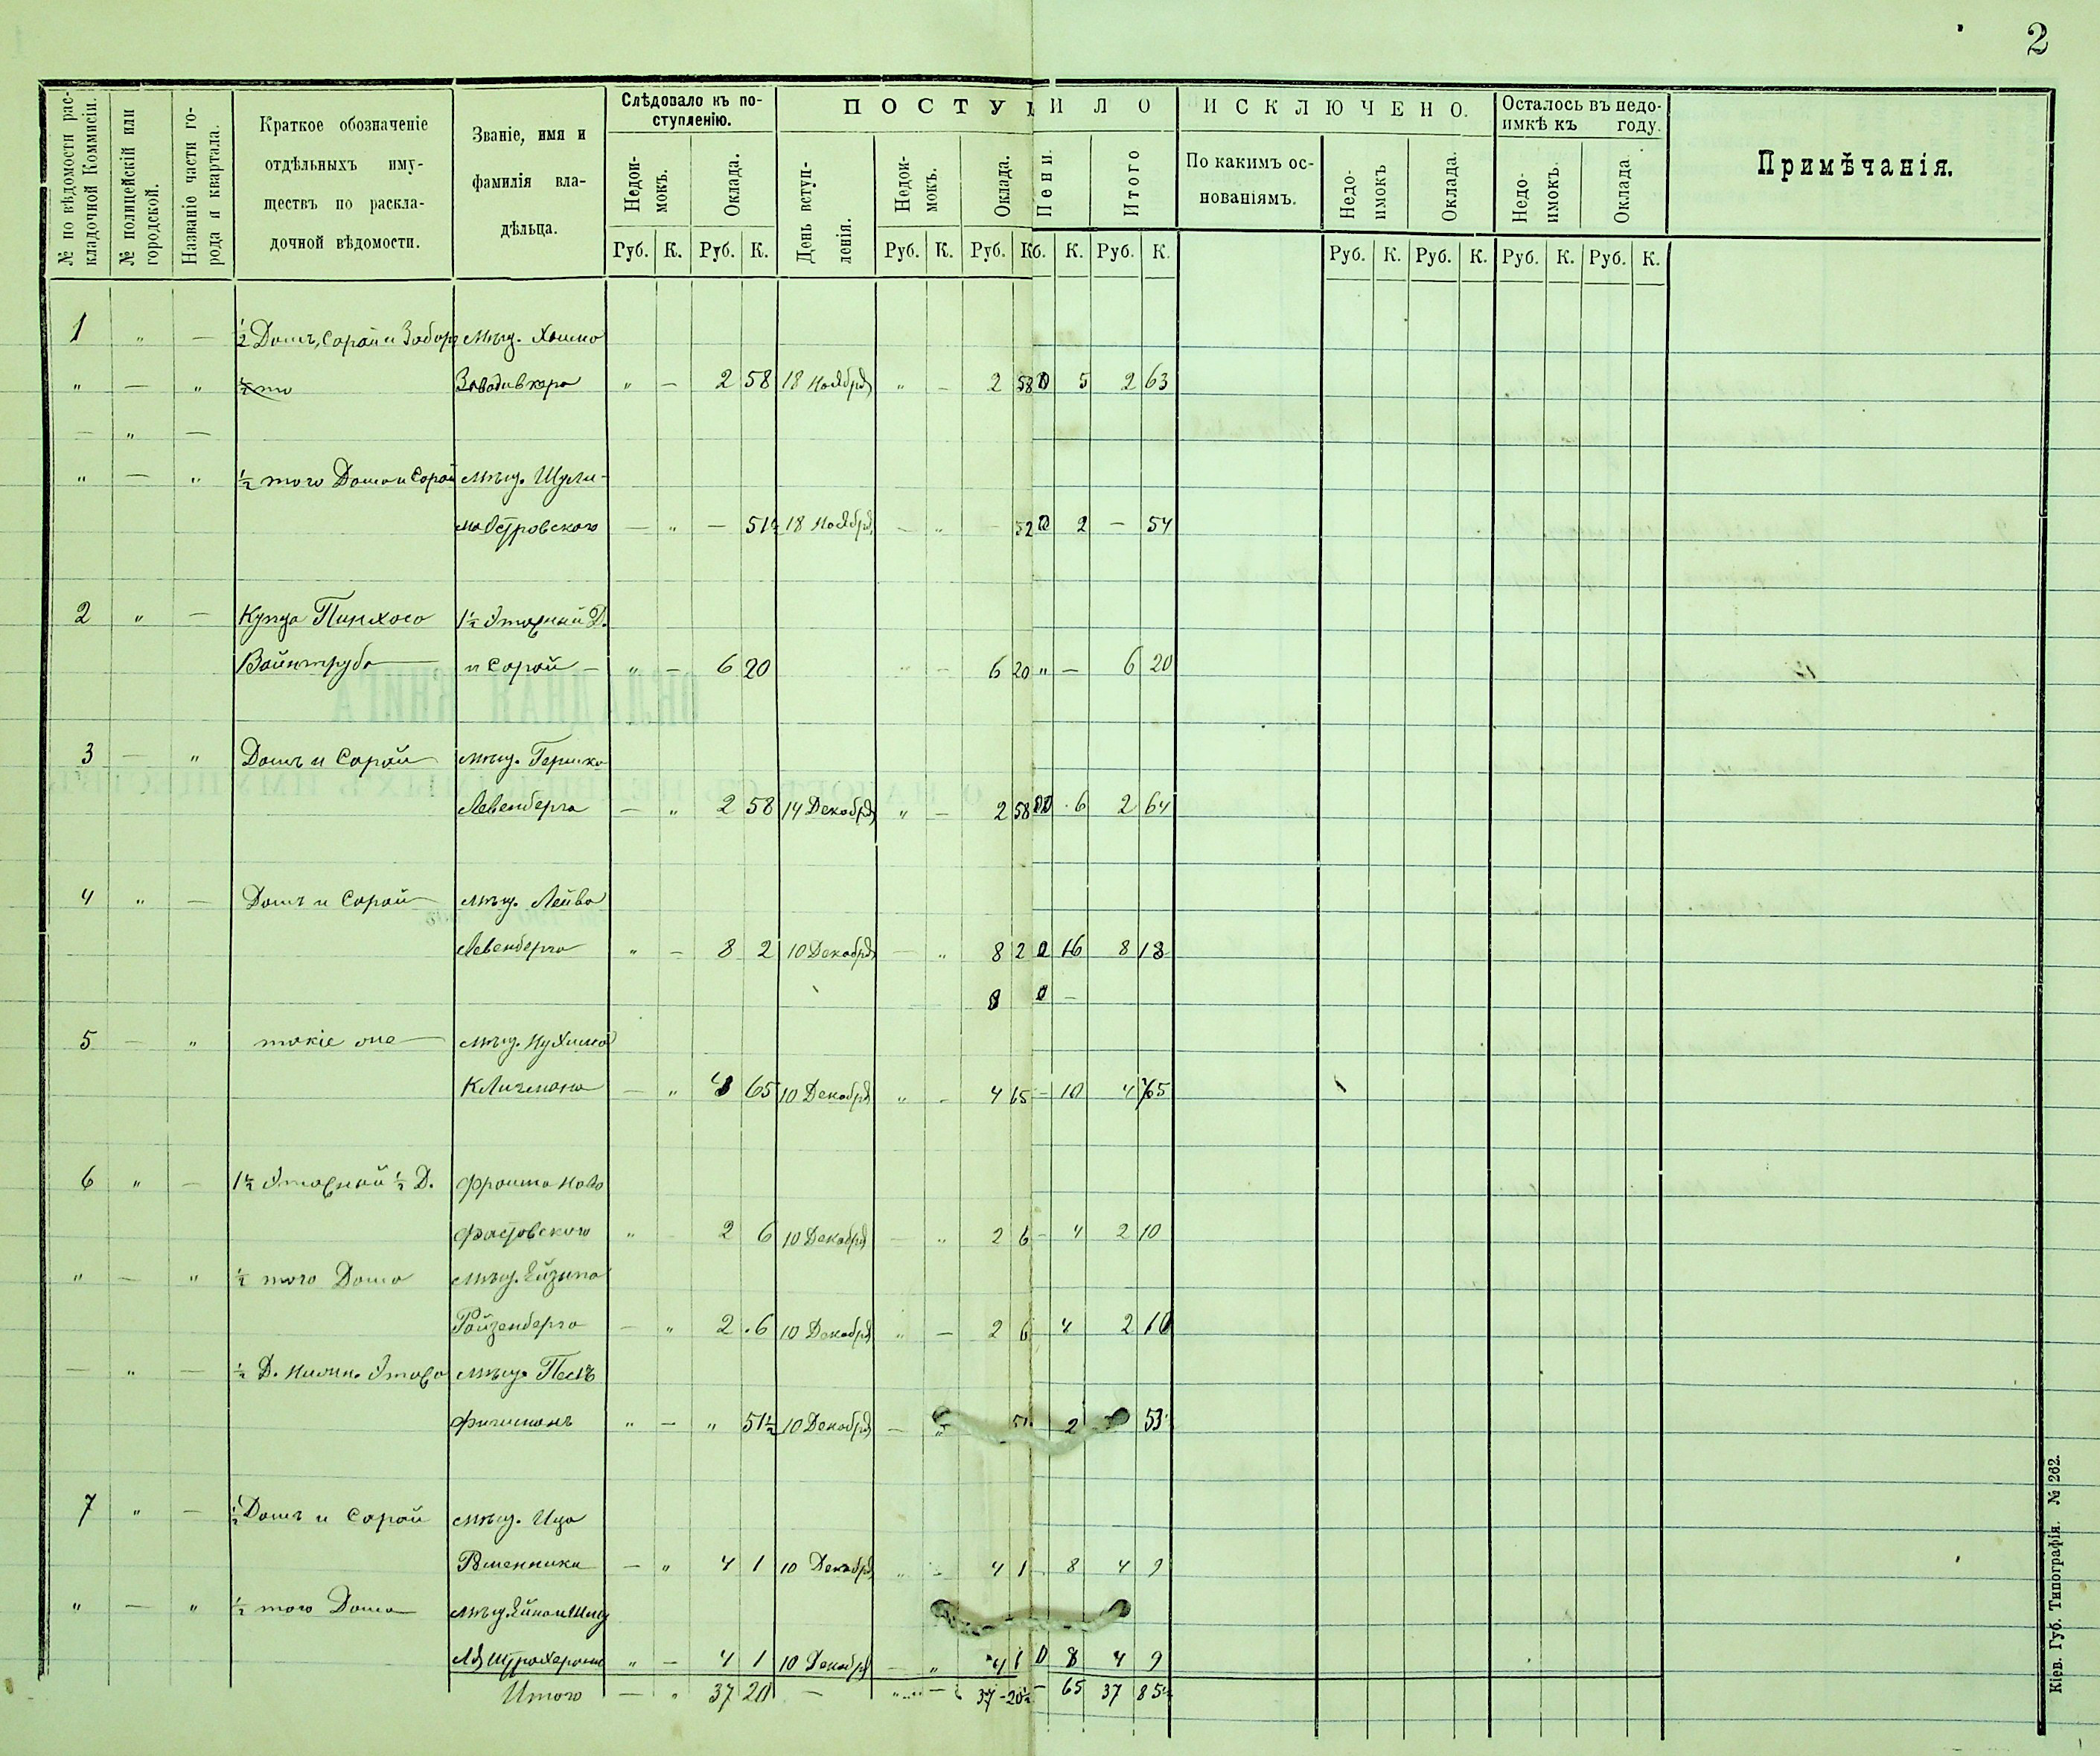 2
№ по вѣдомости рас-
кладочной Коммисіи.
№ полицейскій или
городской.
Названіе части го-
рода и квартала.
Краткое обозначеніе
отдѣльныхъ иму-
ществъ по раскла-
дочной вѣдомости.
Званіе, имя и
фамилія вла-
дѣльца.
Слѣдовало къ по-
ступленію.
Недои-
мокъ.
Оклада.
ПОСТУПИЛО
День вступ-
ленія.
Недои-
мокъ.
Оклада.
Пени.
Итого
ИСКЛЮЧЕНО.
По какимъ ос-
нованіямъ.
Недо-
имокъ
Оклада.
Осталось въ недо-
имкѣ къ году.
Недо-
имокъ.
Оклада.
Примѣчанія.
Руб. К. Руб. К. Руб. К. Руб. К. К. Руб. К. Руб. К. Руб. К. Руб. К. Руб. К.
1 " — ½ Домъ, Сарай и Заборъ мѣщ. Хаима
" — " 2 58 18 Ноября " — 2 58 5 2 63
— " —
" — " ½ того Дома и Сарай мѣщ. Шули-
ма Островского — " — 51½ 18 Ноября — " — 52 2 — 54
2 " — Купца Пинхоса 1½ Этажный Д.
Вайнтруба и Сарай — " — 6 20 " — 6 20 " — 6 20
3 — " Домъ и Сарай мѣщ. Гершка
Левенберга — " 2 58 14 Декабря " — 2 58 6 2 64
4 " — Домъ и Сарай мѣщ. Лейба
Левенберга " — 8 2 10 Декабря — " 8 2 16 8 18
8 —
5 — " такіе же мѣщ. Нухима
Кличмана — " 4 65 10 Декабря " — 4 65 — 10 4 75
6 " — 1½ Этажный ½ Д. Фроима Ново
Фастовского " — 2 6 10 Декабря — " 2 6 — 4 2 10
" — " ½ того Дома мѣщ.
Ройзенберга — " 2 6 10 Декабря " — 2 6 4 2 10
— " — ½ Д. Нижн. Этажа мѣщ. Песѣ
" — " 51½ 10 Декабря — " 51 2 53
7 " — ½ Домъ и Сарай мѣщ. Ица
— " 4 1 10 Декабря " — 4 1 8 4 9
" — " ½ того Дома мѣщ.
" — 4 1 10 Декабря — " 4 1 8 4 9
Итого — " 37 20 — 37 20½ — 65 37 85½
Кіев. Губ. Типографія. № 262.